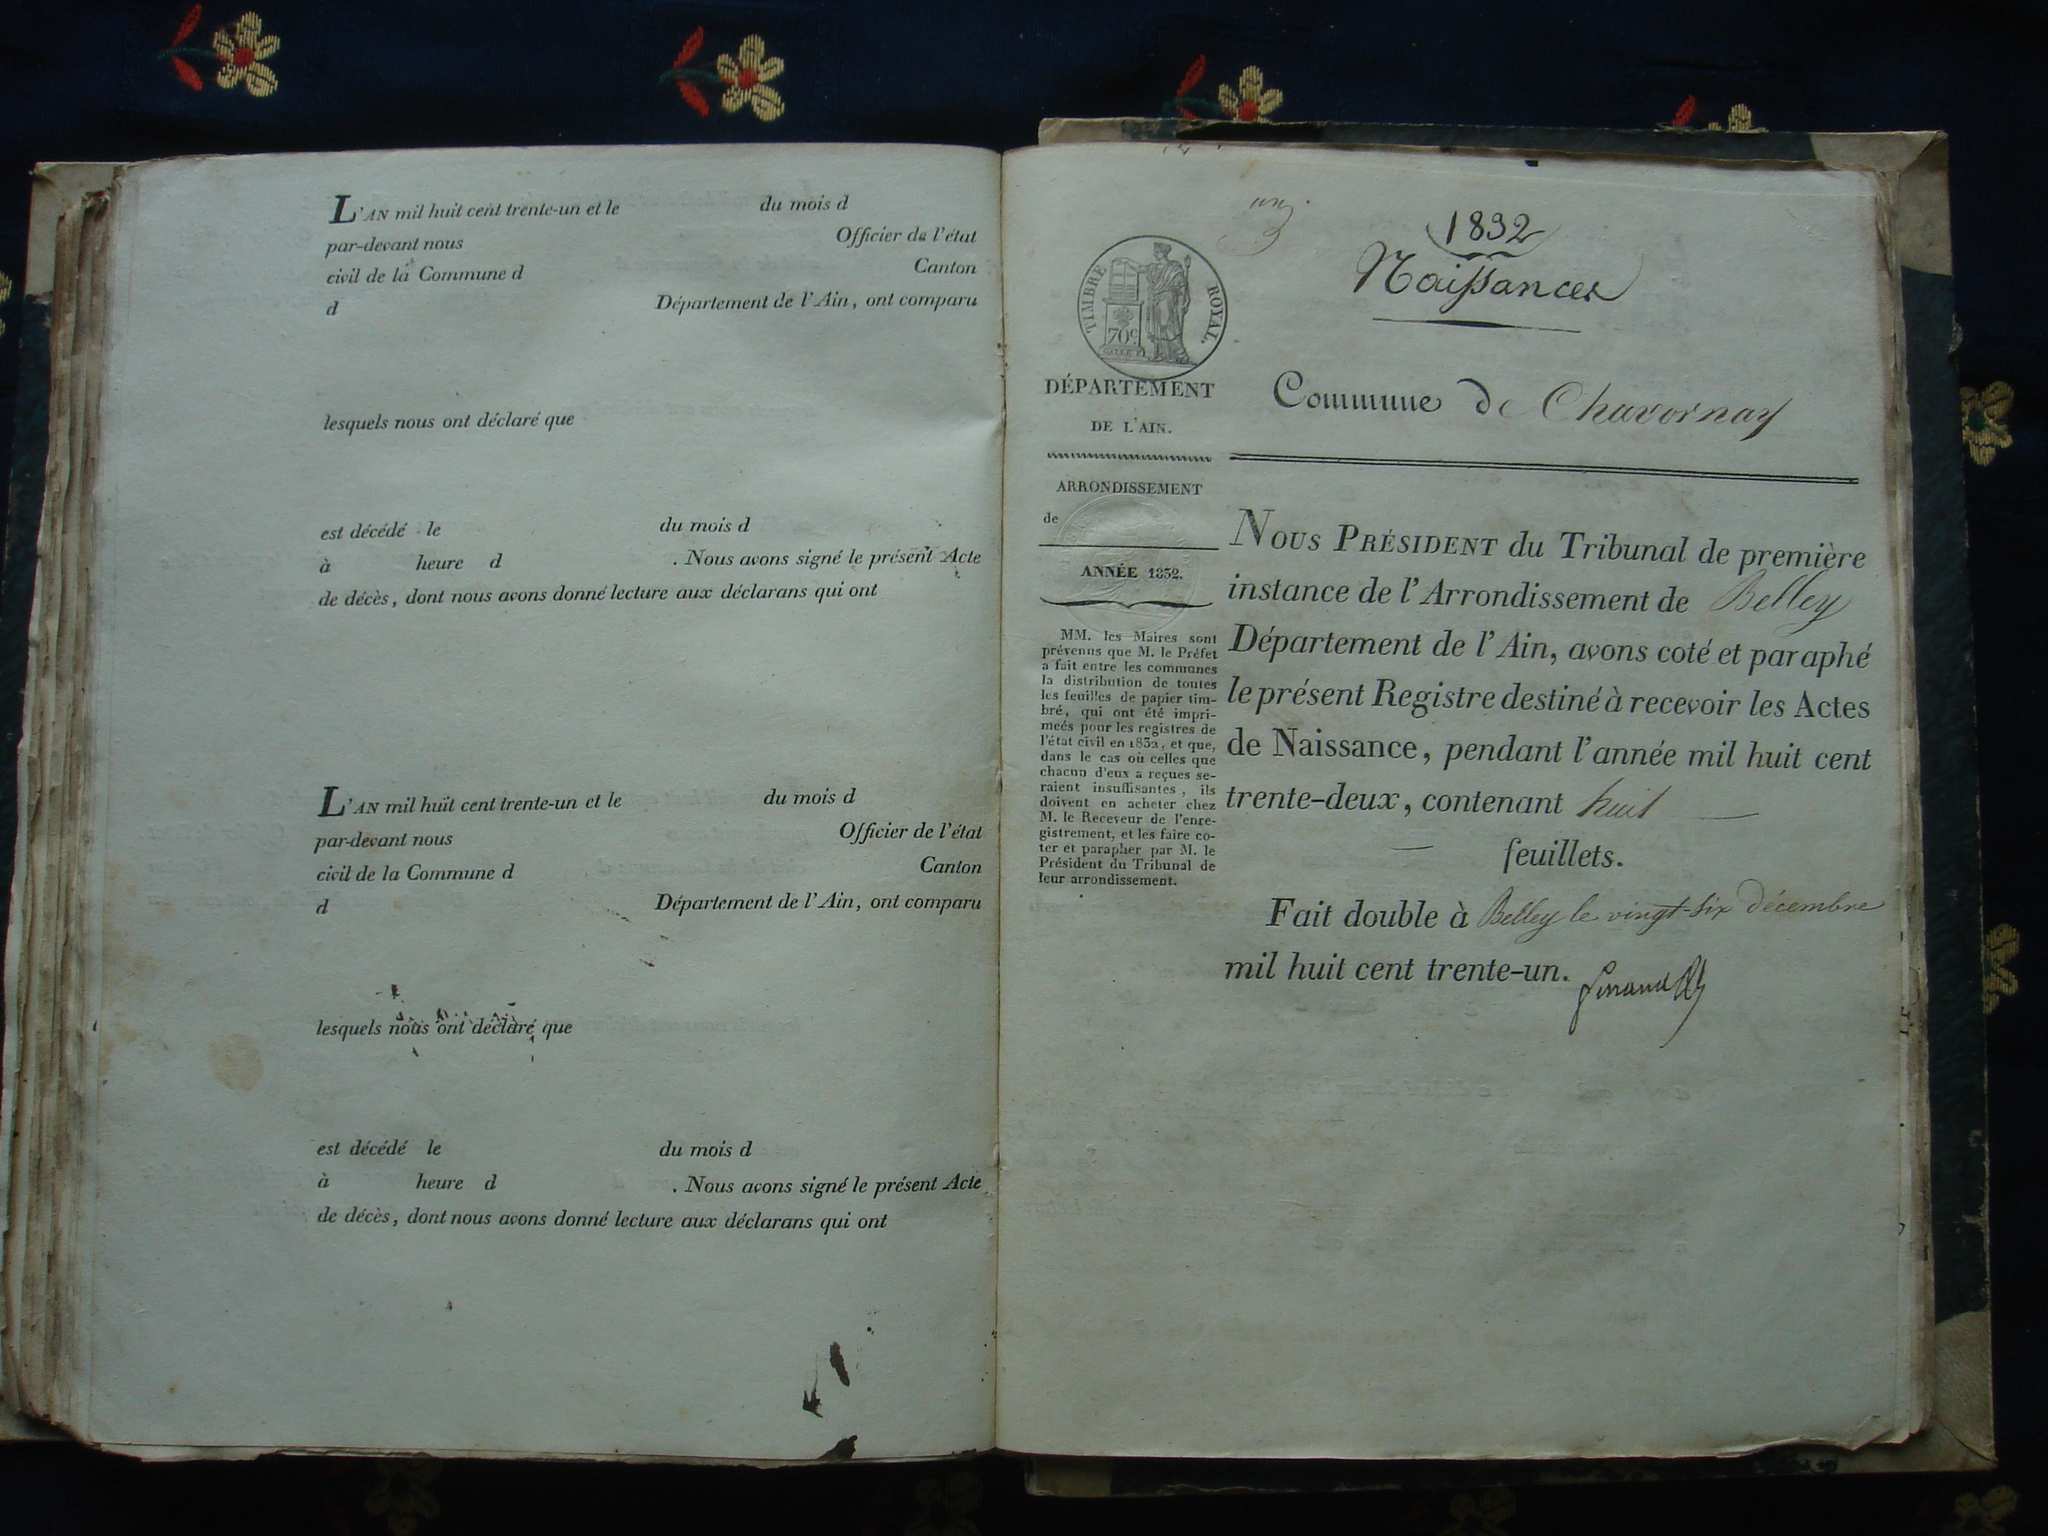 L'AN mil huit cent trente-un et le du mois d
par-devant nous Officier de l'état
civil de la Commune d Canton
d Département de l'Ain, ont comparu
lesquels nous ont déclaré que
est décédé le du mois d
à heure d . Nous avons signé le présent Acte
de décès, dont nous avons donné lecture aux déclarans qui ont
L'AN mil huit cent trente-un et le du mois d
par-devant nous Officier de l'état
civil de la Commune d Canton
d Département de l'Ain, ont comparu
lesquels nous ont déclaré que
est décédé le du mois d
à heure d . Nous avons signé le présent Acte
de décès, dont nous avons donné lecture aux déclarans qui ont
un
1832
Naissances
TIMBRE ROYAL.
70c
DÉPARTEMENT
DE L'AIN.
Commune de Chavornay
ARRONDISSEMENT
de
ANNÉE 1832.
MM. les Maires sont
prévenus que M. le Préfet
a fait entre les communes
la distribution de toutes
les feuilles de papier tim-
bré, qui ont été impri-
meés pour les registres de
l'état civil en 1832, et que,
dans le cas où celles que
chacun d'eux a reçues se-
raient insuffisantes, ils
doivent en acheter chez
M. le Receveur de l'enre-
gistrement, et les faire co-
ter et parapher par M. le
Président du Tribunal de
leur arrondissement.
NOUS PRÉSIDENT du Tribunal de première
instance de l'Arrondissement de Belley
Département de l'Ain, avons coté et paraphé
le présent Registre destiné à recevoir les Actes
de Naissance, pendant l'année mil huit cent
trente-deux, contenant huit —
— feuillets.
Fait double à Belley le vingt-six décembre
mil huit cent trente-un.